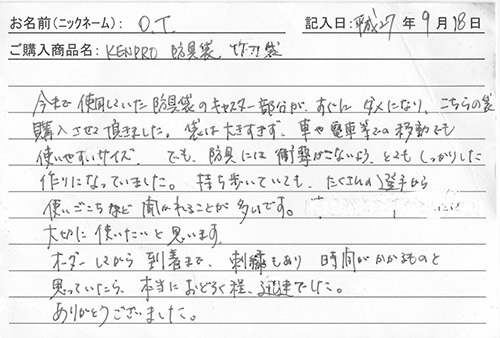 お名前(ニックネーム): O.T. 記入日: 平成27年9月18日
ご購入商品名: KENPRO 防具袋、竹刀袋
今まで使用していた防具袋のキャスター部分が、すぐにダメになり、こちらの袋
購入させて頂きました。袋は大きすぎず、車や電車等での移動でも
使いやすいサイズ。でも、防具には衝撃がこないよう、とてもしっかりした
作りになっていました。持ち歩いていても、たくさんの選手から
使いごこちなど聞かれることが多いです。
大切に使いたいと思います。
オーダーしてから到着まで、刺繍もあり時間がかかるものと
思っていたら、本当におどろく程、迅速でした。
ありがとうございました。